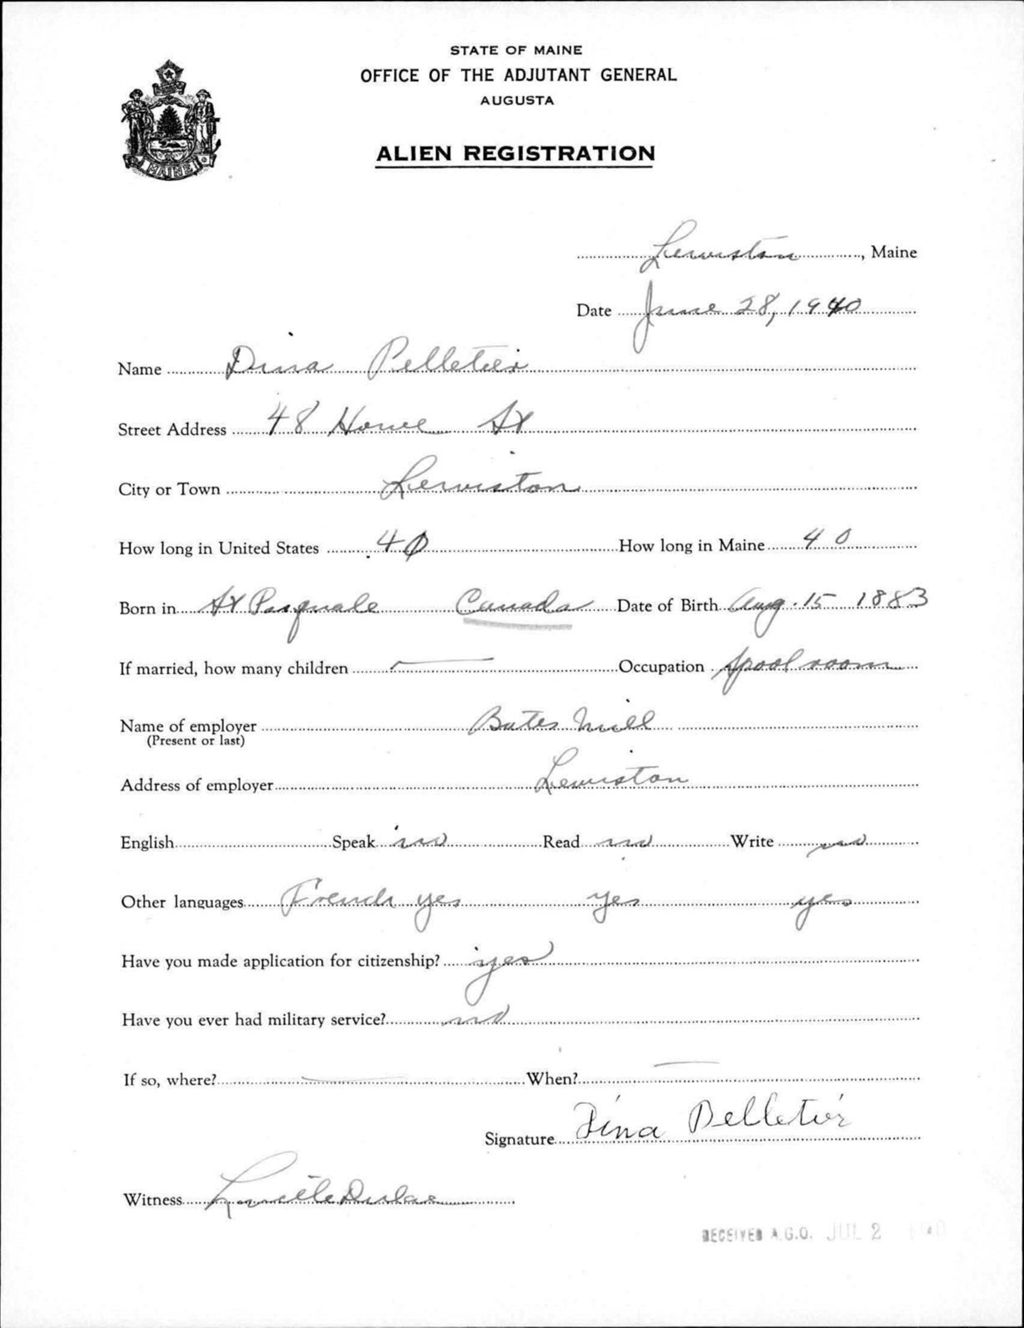 STATE OF MAINE
OFFICE OF THE ADJUTANT GENERAL
AUGUSTA
ALIEN REGISTRATION
MAINE
Lewiston, Maine
Date June 28, 1940
Name Dina Pelletier
Street Address 48 Howe St
City or Town Lewiston
How long in United States 40 How long in Maine 40
Born in St Pasquale Canada Date of Birth Aug. 15 1883
If married, how many children — Occupation Spool room
Name of employer Bates Mill
(Present or last)
Address of employer Lewiston
English Speak no Read no Write no
Other languages French yes yes yes
Have you made application for citizenship? yes
Have you ever had military service? no
If so, where? — When? —
Signature Dina Pelletier
Witness Lucille Dulac
RECEIVED A.G.O. JUL 2